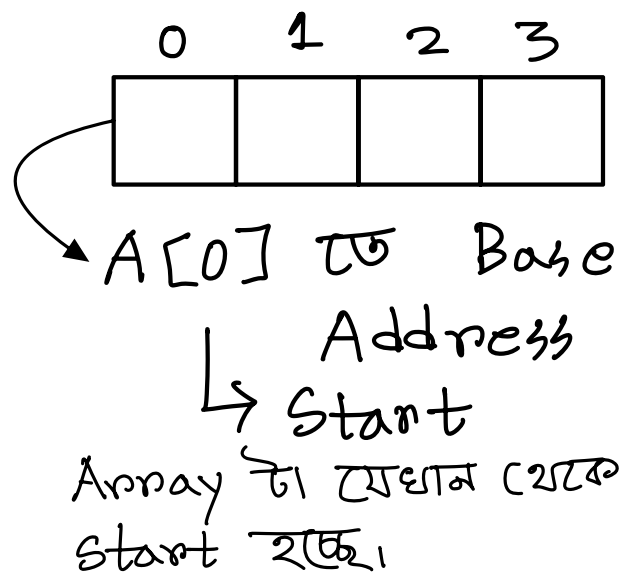 0 1 2 3
A[0] তে Base
Address
Start
Array টা যেখান থেকে
Start হচ্ছে।